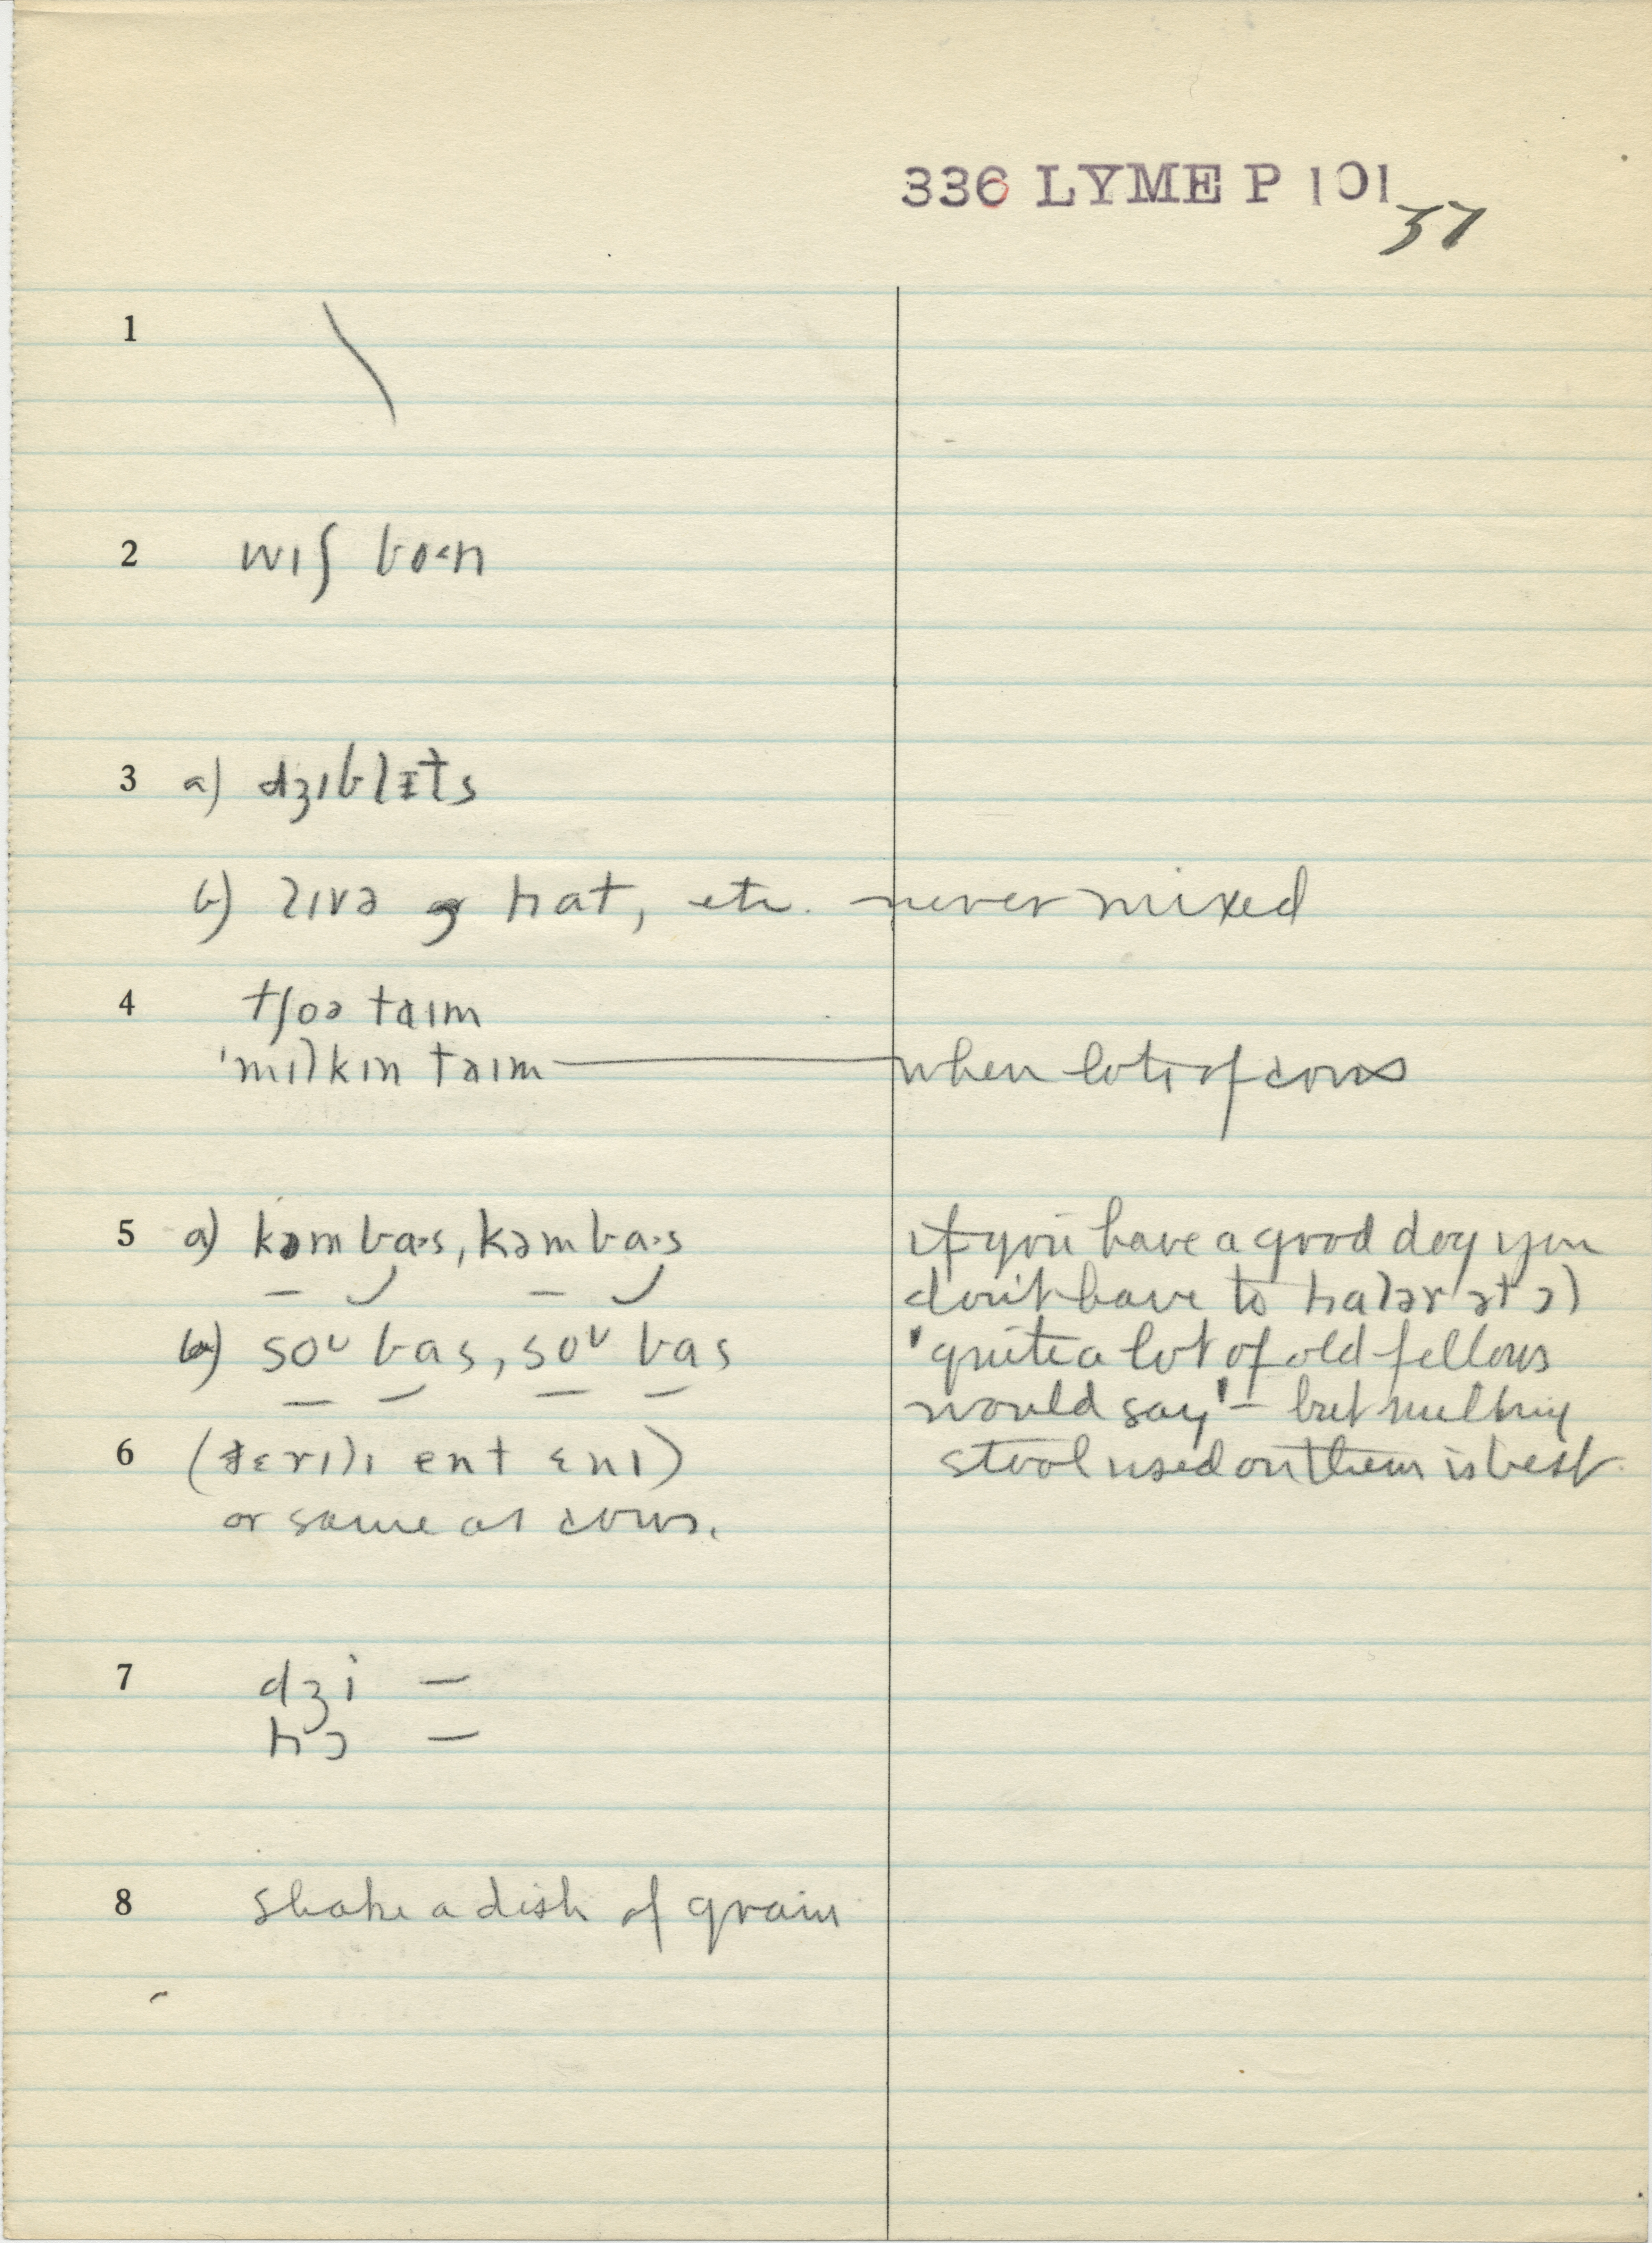 336 LYME P 101
37
1
2 wɪʃ bo˂n
3 a) dʒɪblᵻts
b) lɪvə hat, etc. never mixed
4 tʃoə taɪm
'mɪlkɪn taɪm — when lots of cows
5 a) kəm ba·s, kəm ba·s if you have a good dog you
don't have to halər ət ɔl
b) soᶷ bas, soᶷ bas 'quite a lot of old fellows
would say' – but milking
6 stool used on them is best.
or same as cows.
7 dʒi –
hɔ –
8 shake a dish of grain